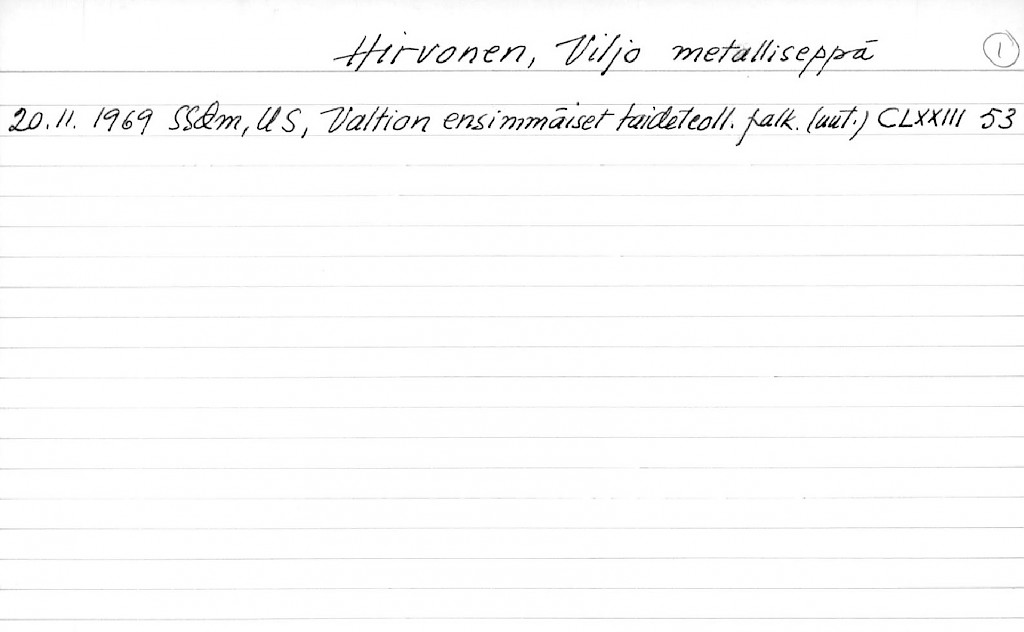 Hirvonen, Viljo metalliseppä 1
20.11. 1969 SSdm, US, Valtion ensimmäiset taideteoll. palk. (uut.) CLXXIII 53